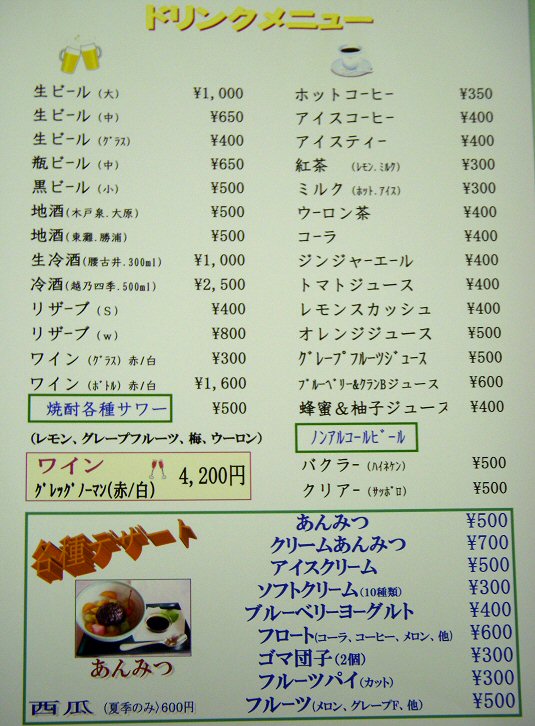 ドリンクメニュー
生ビール（大） ¥1,000
生ビール（中） ¥650
生ビール（グラス） ¥400
瓶ビール（中） ¥650
黒ビール（小） ¥500
地酒（木戸泉.大原） ¥500
地酒（東灘.勝浦） ¥500
生冷酒（腰古井.300ml） ¥1,000
冷酒（越乃四季.500ml） ¥2,500
リザーブ（S） ¥400
リザーブ（w） ¥800
ワイン（グラス）赤/白 ¥300
ワイン（ボトル）赤/白 ¥1,600
焼酎各種サワー ¥500
(レモン、グレープフルーツ、梅、ウーロン)
ワイン
グレッグノーマン(赤/白) 4,200円
ホットコーヒー ¥350
アイスコーヒー ¥400
アイスティー ¥400
紅茶 （レモン.ミルク） ¥300
ミルク（ホット.アイス） ¥300
ウーロン茶 ¥400
コーラ ¥400
ジンジャーエール ¥400
トマトジュース ¥400
レモンスカッシュ ¥400
オレンジジュース ¥500
グレープフルーツジュース ¥500
ブルーベリー&クランBジュース ¥600
蜂蜜＆柚子ジュース ¥400
ノンアルコールビール
バクラー（ハイネケン） ¥500
クリアー（サッポロ） ¥500
各種デザート
あんみつ
西瓜 （夏季のみ）600円
あんみつ ¥500
クリームあんみつ ¥700
アイスクリーム ¥500
ソフトクリーム(10種類) ¥300
ブルーベリーヨーグルト ¥400
フロート(コーラ、コーヒー、メロン、他) ¥600
ゴマ団子(2個) ¥300
フルーツパイ(カット) ¥300
フルーツ(メロン、グレープF、他) ¥500